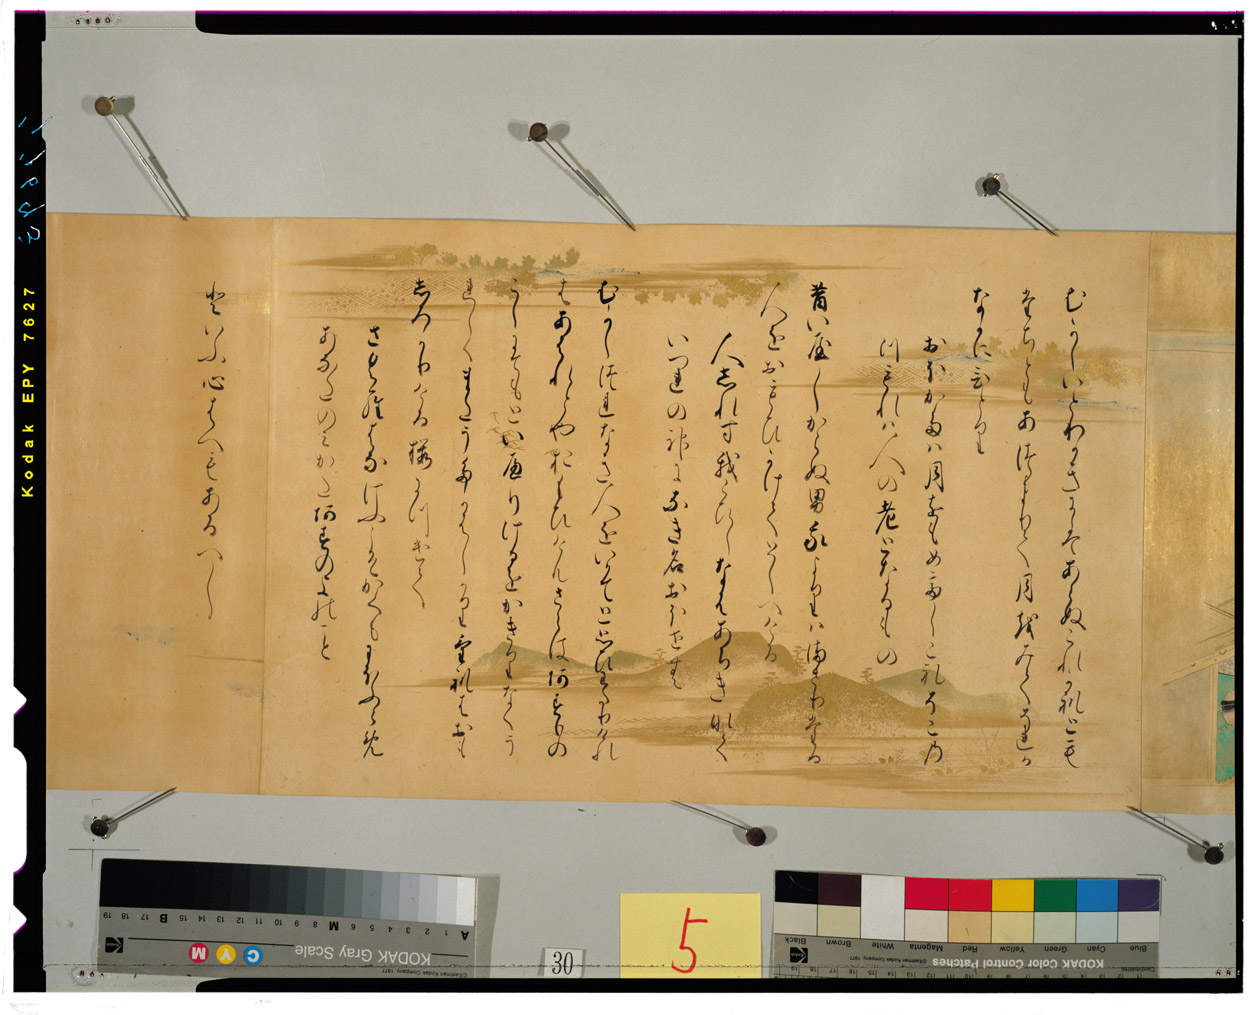 むかしいとわかきにはあらぬこれかれとも
たちともあつまりて月を見てそれか
なかにひとり
おほかたは月をもめてしこれそこの
つもれは人の老となるもの
昔いやしからぬ男我よりはまさりたる
人をおもひかけてとしへける
人しれす我こひしなはあちきなく
いつれの神になき名おほせむ
むかしつれなき人をいかてと思ひわたりけれ
はあはれとや思ひけんさらはあすもの
こしにてもといへりけるをかきりなくう
れしくまたうたかはしかりけれはおも
しろかりける桜につけて
さくら花けふこそかくもにほふらめ
あなたのみかたあすのよのこと
といふ心はへもあるへし
Kodak EPY 7627
5
30
KODAK Gray Scale
C Y M
A 1 2 3 4 5 6 M 8 9 10 11 12 13 14 15 B 17 18 19
KODAK Color Control Patches
Blue Cyan Green Yellow Red Magenta White Brown Black